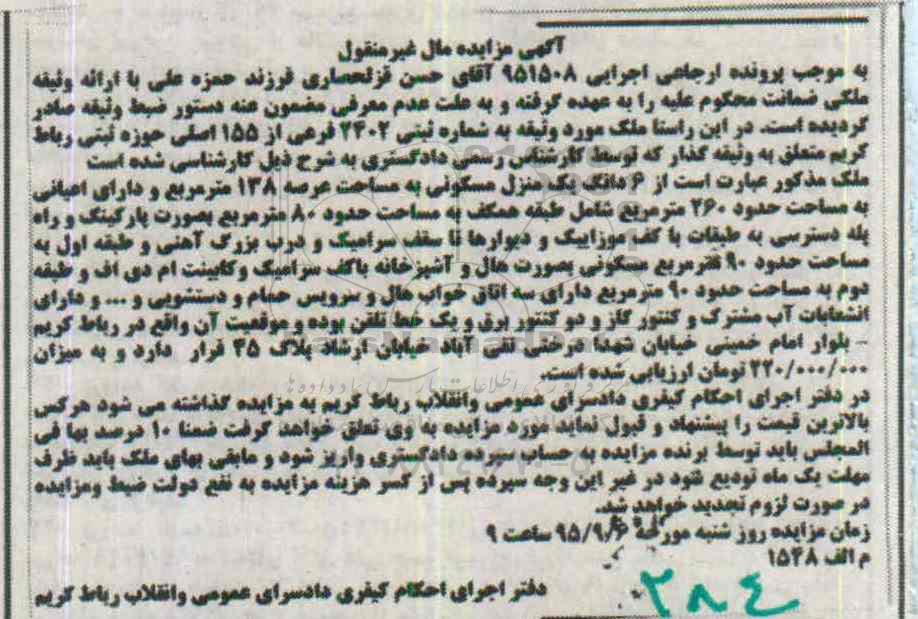 آگهی مزایده مال غیرمنقول
به موجب پرونده ارجاعی اجرایی ۹۵۱۵۰۸ آقای حسن قزلحصاری فرزند حمزه علی با ارائه وثیقه
ملکی ضمانت محکوم علیه را به عهده گرفته و به علت عدم معرفی مضمون عنه دستور ضبط وثیقه صادر
گردیده است. در این راستا ملک مورد وثیقه به شماره ثبتی ۲۴۰۲ فرعی از ۱۵۵ اصلی حوزه ثبتی رباط
کریم متعلق به وثیقه گذار که توسط کارشناس رسمی دادگستری به شرح ذیل کارشناسی شده است
ملک مذکور عبارت است از ۶ دانگ یک منزل مسکونی به مساحت عرصه ۱۳۸ مترمربع و دارای اعیانی
به مساحت حدود ۲۶۰ مترمربع شامل طبقه همکف به مساحت حدود ۸۰ مترمربع بصورت پارکینگ و راه
پله دسترسی به طبقات با کف موزاییک و دیوارها تا سقف سرامیک و درب بزرگ آهنی و طبقه اول به
مساحت حدود ۹۰ مترمربع مسکونی بصورت هال و آشپزخانه باکف سرامیک وکابینت ام دی اف و طبقه
دوم به مساحت حدود ۹۰ مترمربع دارای سه اتاق خواب هال و سرویس حمام و دستشویی و ... و دارای
انشعابات آب مشترک و کنتور گاز و دو کنتور برق و یک خط تلفن بوده و موقعیت آن واقع در رباط کریم
- بلوار امام خمینی خیابان شهدا درختی تقی آباد خیابان ارشاد پلاک ۴۵ قرار دارد و به میزان
۲۲۰/۰۰۰/۰۰۰ تومان ارزیابی شده است.
در دفتر اجرای احکام کیفری دادسرای عمومی وانقلاب رباط کریم به مزایده گذاشته می شود هرکس
بالاترین قیمت را پیشنهاد و قبول نماید مورد مزایده به وی تعلق خواهد گرفت ضمنا ۱۰ درصد بها فی
المجلس باید توسط برنده مزایده به حساب سپرده دادگستری واریز شود و مابقی بهای ملک باید ظرف
مهلت یک ماه تودیع شود در غیر این وجه سپرده پس از کسر هزینه مزایده به نفع دولت ضبط ومزایده
در صورت لزوم تجدید خواهد شد.
زمان مزایده روز شنبه مورخه ۹۵/۹/۶ ساعت ۹
م الف ۱۵۴۸
دفتر اجرای احکام کیفری دادسرای عمومی وانقلاب رباط کریم
۲۸٤